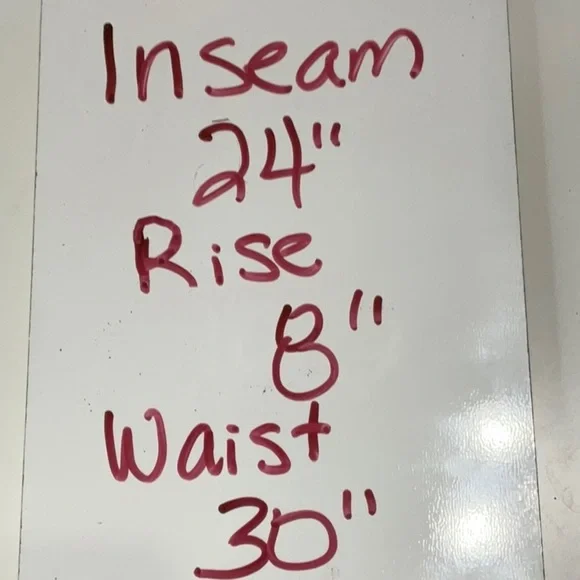 Inseam
24"
Rise
8"
Waist
30"